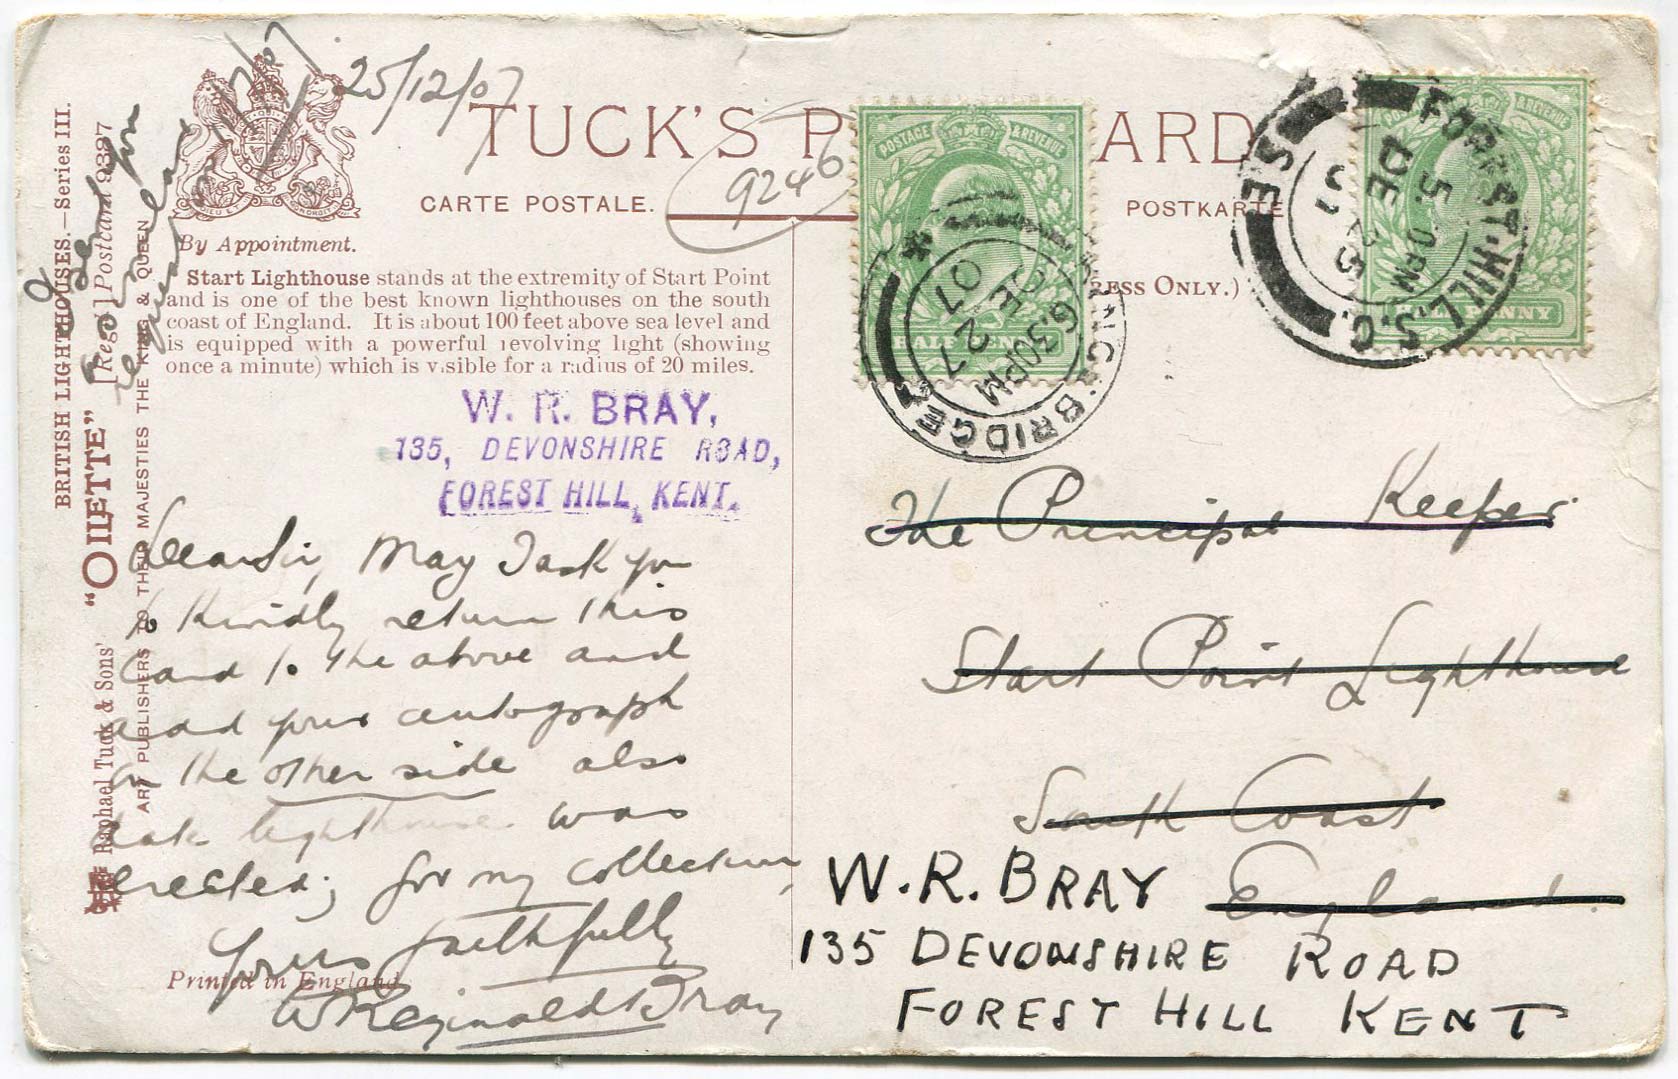 25/12/07
TUCK'S P
ARD
9246
CARTE POSTALE.
POSTKARTE
By Appointment.
RESS ONLY.)
Start Lighthouse stands at the extremity of Start Point
and is one of the best known lighthouses on the south
coast of England. It is about 100 feet above sea level and
is equipped with a powerful revolving light (showing
once a minute) which is visible for a radius of 20 miles.
BRITISH LIGHTHOUSES.—Series III.
Raphael Tuck & Sons' "OILETTE" [Regd.] Postcard 9397
ART PUBLISHERS TO THEIR MAJESTIES THE KING & QUEEN
W. R. BRAY,
135, DEVONSHIRE ROAD,
FOREST HILL, KENT.
Dear Sir, May I ask you
to kindly return this
card to the above and
add your autograph
on the other side also
date lighthouse was
erected; for my collection,
Yours faithfully
W Reginald Bray
Printed in England.
POSTAGE & REVENUE
HALF PENNY
BRIDGE
6.30PM
DE 27
07
& REVENUE
HALF PENNY
FOREST HILL S.O.
S.E
5. 0PM
DE 25
07
The Principal Keeper
Start Point Lighthouse
South Coast
England.
W. R. BRAY
135 DEVONSHIRE ROAD
FOREST HILL KENT